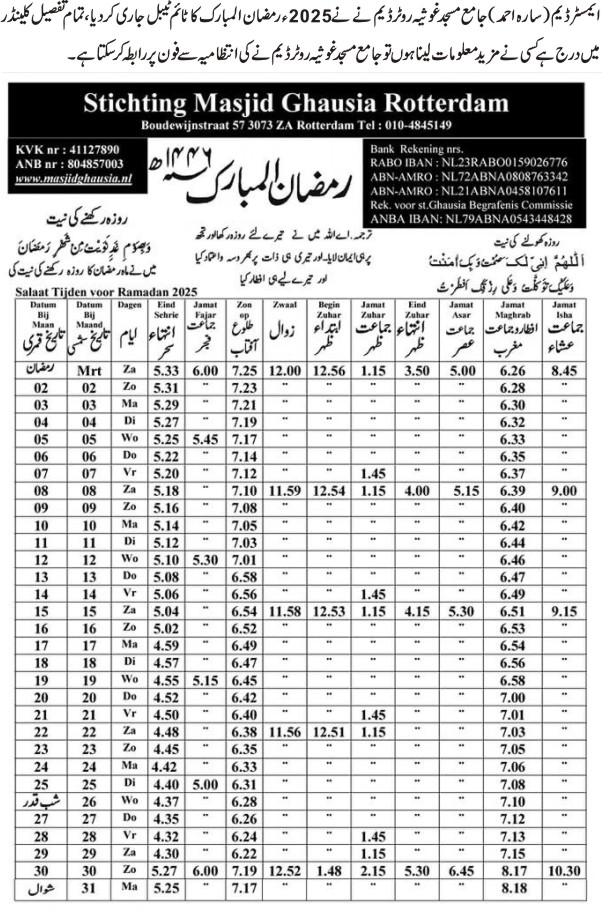 ایمسٹرڈیم (سارہ احمد) جامع مسجد غوثیہ روٹرڈیم نے نے 2025ء رمضان المبارک کا ٹائم ٹیبل جاری کر دیا، تمام تفصیل کلینڈر
میں درج ہے کسی نے مزید معلومات لینا ہوں تو جامع مسجد غوثیہ روٹرڈیم نے کی انتظامیہ سے فون پر رابطہ کر سکتا ہے۔
Stichting Masjid Ghausia Rotterdam
Boudewijnstraat 57 3073 ZA Rotterdam Tel : 010-4845149
KVK nr : 41127890
ANB nr : 804857003
www.masjidghausia.nl
رمضان المبارک ۱۴۴۶ھ
Bank Rekening nrs.
RABO IBAN : NL23RABO0159026776
ABN-AMRO : NL72ABNA0808763342
ABN-AMRO : NL21ABNA0458107611
Rek. voor st.Ghausia Begrafenis Commissie
ANBA IBAN: NL79ABNA0543448428
روزہ رکھنے کی نیت
وَبِصَوْمِ غَدٍ نَّوَيْتُ مِنْ شَهْرِ رَمَضَانَ
میں نے ماہ رمضان کا روزہ رکھنے کی نیت کی
ترجمہ۔ اے اللہ میں نے تیرے لئے روزہ رکھا اور تجھ
پر ہی ایمان لایا۔ اور تیری ہی ذات پر بھروسہ و اعتماد کیا
اور تیرے لیے ہی افطار کیا
روزہ کھولنے کی نیت
اَللّٰهُمَّ اِنِّى لَكَ صُمْتُ وَبِكَ اٰمَنْتُ
وَعَلَيْكَ تَوَكَّلْتُ وَعَلٰى رِزْقِكَ اَفْطَرْتُ
Salaat Tijden voor Ramadan 2025
Datum Bij Maan تاریخ قمری Datum Bij Maand تاریخ شمسی Dagen ایام Eind Sehrie انتہاء سحر Jamat Fajar جماعت فجر Zon op طلوع آفتاب Zwaal زوال Begin Zuhar ابتداء ظہر Jamat Zuhar جماعت ظہر Eind Zuhar انتہاء ظہر Jamat Asar جماعت عصر Jamat Maghrab افطار وجماعت مغرب Jamat Isha جماعت عشاء
رمضان Mrt Za 5.33 6.00 7.25 12.00 12.56 1.15 3.50 5.00 6.26 8.45
02 02 Zo 5.31 " 7.23 " " " " " 6.28 "
03 03 Ma 5.29 " 7.21 " " " " " 6.30 "
04 04 Di 5.27 " 7.19 " " " " " 6.32 "
05 05 Wo 5.25 5.45 7.17 " " " " " 6.33 "
06 06 Do 5.22 " 7.14 " " " " " 6.35 "
07 07 Vr 5.20 " 7.12 " " 1.45 " " 6.37 "
08 08 Za 5.18 " 7.10 11.59 12.54 1.15 4.00 5.15 6.39 9.00
09 09 Zo 5.16 " 7.08 " " " " " 6.40 "
10 10 Ma 5.14 " 7.05 " " " " " 6.42 "
11 11 Di 5.12 " 7.03 " " " " " 6.44 "
12 12 Wo 5.10 5.30 7.01 " " " " " 6.46 "
13 13 Do 5.08 " 6.58 " " " " " 6.47 "
14 14 Vr 5.06 " 6.56 " " 1.45 " " 6.49 "
15 15 Za 5.04 " 6.54 11.58 12.53 1.15 4.15 5.30 6.51 9.15
16 16 Zo 5.02 " 6.52 " " " " " 6.53 "
17 17 Ma 4.59 " 6.49 " " " " " 6.54 "
18 18 Di 4.57 " 6.47 " " " " " 6.56 "
19 19 Wo 4.55 5.15 6.45 " " " " " 6.58 "
20 20 Do 4.52 " 6.42 " " " " " 7.00 "
21 21 Vr 4.50 " 6.40 " " 1.45 " " 7.01 "
22 22 Za 4.48 " 6.38 11.56 12.51 1.15 " " 7.03 "
23 23 Zo 4.45 " 6.35 " " " " " 7.05 "
24 24 Ma 4.42 " 6.33 " " " " " 7.06 "
25 25 Di 4.40 5.00 6.31 " " " " " 7.08 "
شب قدر 26 Wo 4.37 " 6.28 " " " " " 7.10 "
27 27 Do 4.35 " 6.26 " " " " " 7.12 "
28 28 Vr 4.32 " 6.24 " " 1.45 " " 7.13 "
29 29 Za 4.30 " 6.22 " " 1.15 " " 7.15 "
30 30 Zo 5.27 6.00 7.19 12.52 1.48 2.15 5.30 6.45 8.17 10.30
شوال 31 Ma 5.25 " 7.17 " " " " " 8.18 "